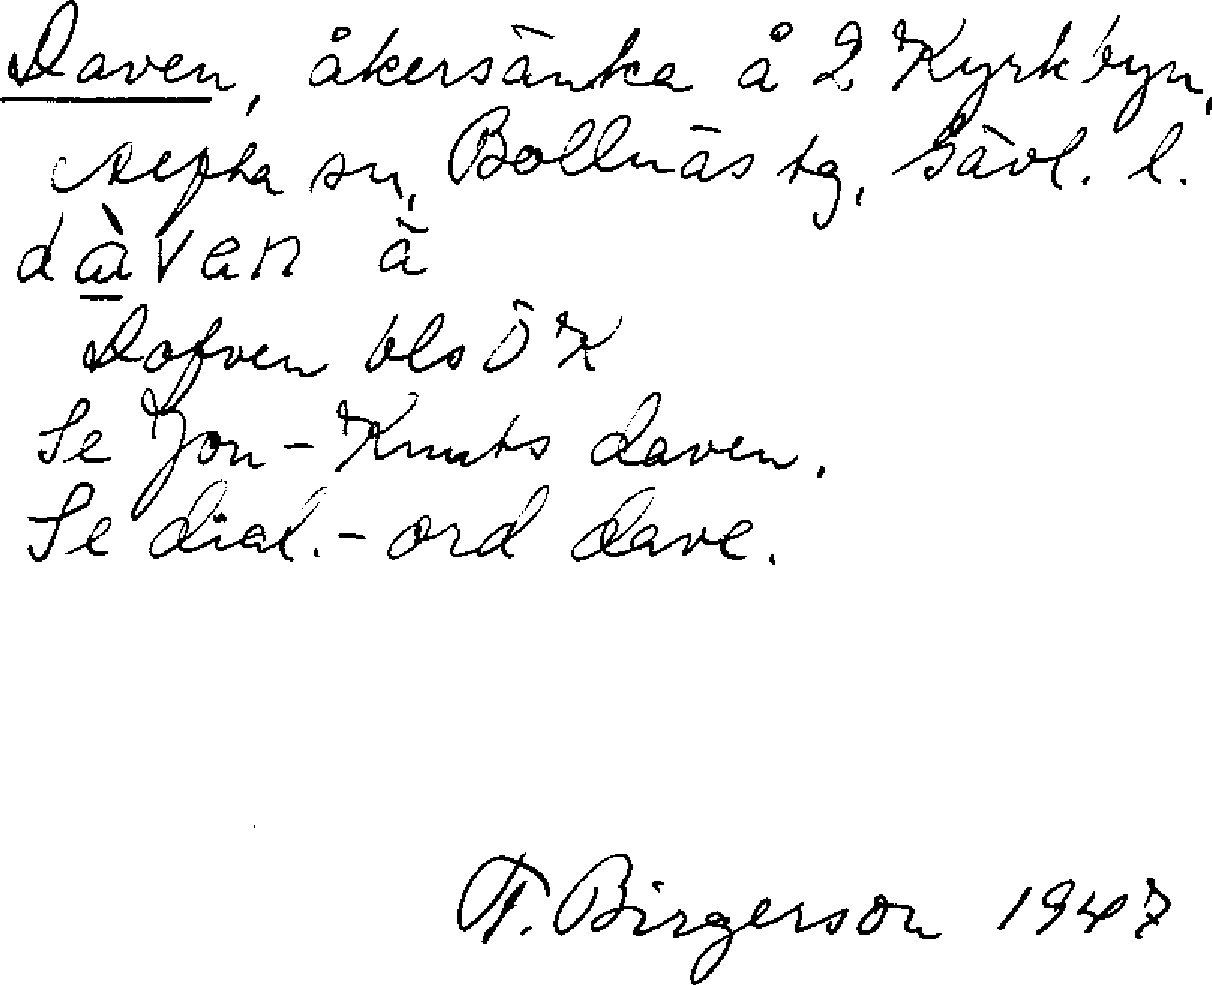 Daven, åkersänka å 2 Kyrkbyn,
Alfta sn, Bollnäs tg, Gävl. l.
dàvan ā
Dofven bls ÖK
Se Jon-Knuts daven.
Se dial.-ord dave.
F. Birgerson 1947